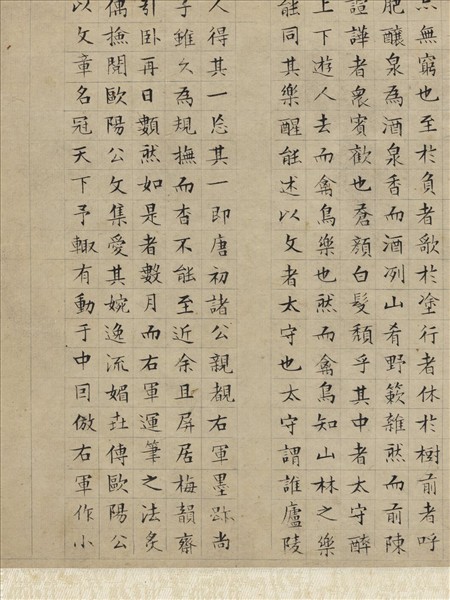 無窮也至於負者歌於塗行者休於樹前者呼
肥釀泉為酒泉香而酒冽山肴野簌雜然而前陳
諠譁者衆賓歡也蒼顏白髮頹乎其中者太守醉
上下遊人去而禽鳥樂也然而禽鳥知山林之樂
能同其樂醒能述以文者太守也太守謂誰廬陵
人得其一忘其一即唐初諸公親覩右軍墨跡尚
子雖久為規撫而杳不能至近余且屏居梅韻齋
引卧再日數然如是者數月而右軍運筆之法炙
偶撿閱歐陽公文集愛其婉逸流媚卋傳歐陽公
以文章名冠天下予輙有動于中囙倣右軍作小